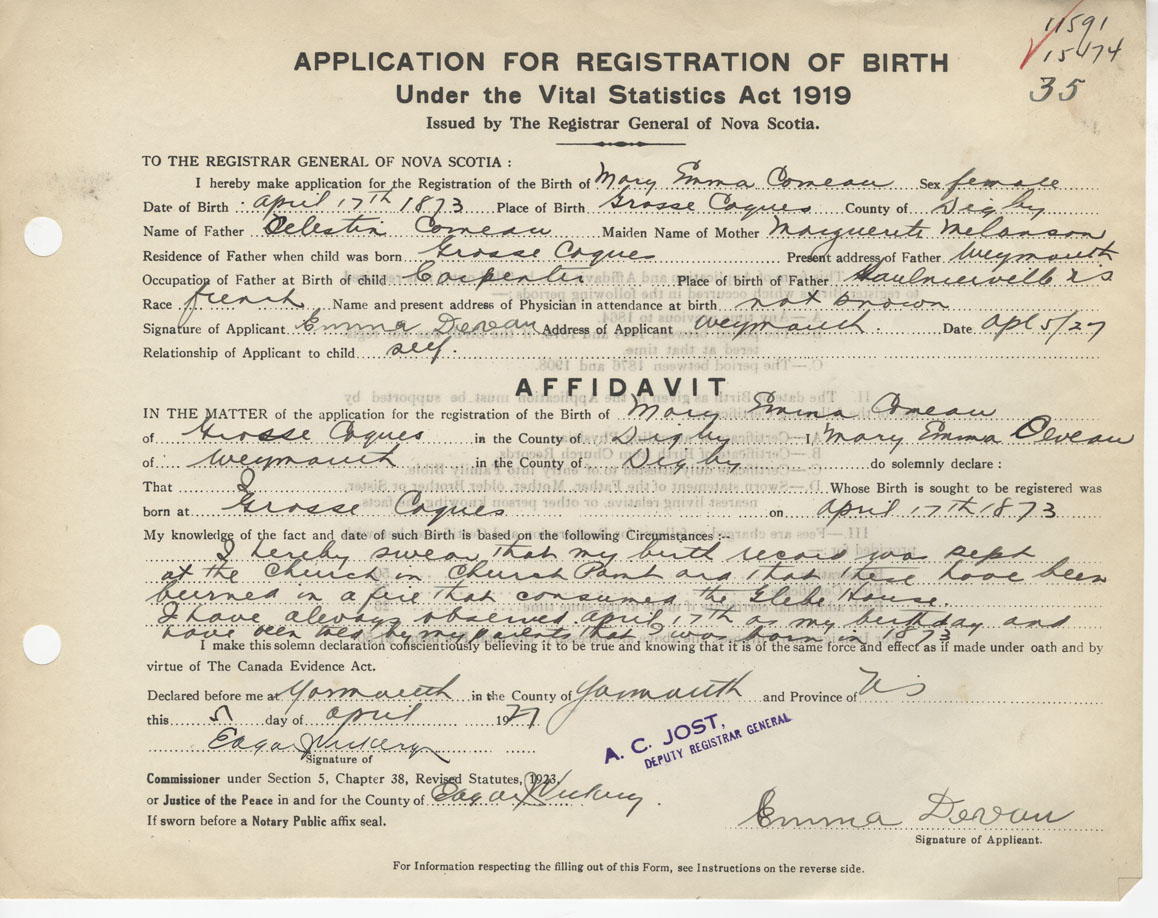 11591
15474
35
APPLICATION FOR REGISTRATION OF BIRTH
Under the Vital Statistics Act 1919
Issued by The Registrar General of Nova Scotia.
TO THE REGISTRAR GENERAL OF NOVA SCOTIA :
I hereby make application for the Registration of the Birth of Mary Emma Comeau Sex female
Date of Birth April 17th 1873 Place of Birth Grosse Coques County of Digby
Name of Father Celestin Comeau Maiden Name of Mother Marguerite Melanson
Residence of Father when child was born Grosse Coques Present address of Father Weymouth
Occupation of Father at Birth of child Carpenter Place of birth of Father Saulnierville N S
Race french Name and present address of Physician in attendance at birth not known
Signature of Applicant Emma Devau Address of Applicant Weymouth Date Apl 5/27
Relationship of Applicant to child self.
AFFIDAVIT
IN THE MATTER of the application for the registration of the Birth of Mary Emma Comeau
of Grosse Coques in the County of Digby I Mary Emma Deveau
of Weymouth in the County of Digby do solemnly declare :
That I Whose Birth is sought to be registered was
born at Grosse Coques on April 17th 1873
My knowledge of the fact and date of such Birth is based on the following Circumstances :--
I hereby swear that my birth record was kept
at the Church in Church Point and that these have been
burned in a fire that consumed the Glebe House.
I have always observed April 17th as my birthday and
have been told by my parents that I was born in 1873
I make this solemn declaration conscientiously believing it to be true and knowing that it is of the same force and effect as if made under oath and by
virtue of The Canada Evidence Act.
Declared before me at Yarmouth in the County of Yarmouth and Province of N S
this 5 day of April 1927
Edgar J Vickery
Signature of
A. C. JOST,
DEPUTY REGISTRAR GENERAL
Commissioner under Section 5, Chapter 38, Revised Statutes, 1923,
or Justice of the Peace in and for the County of Edgar J Vickery.
If sworn before a Notary Public affix seal.
Emma Devau
Signature of Applicant.
For Information respecting the filling out of this Form, see Instructions on the reverse side.